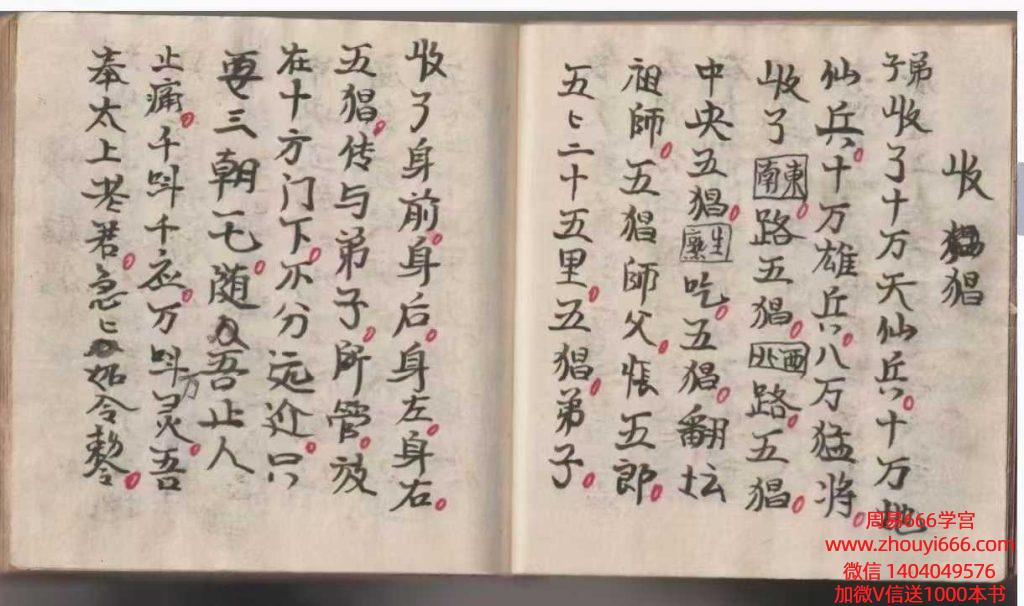 收猖
弟子收了十万天仙兵十万地
仙兵十万雄兵八万猛将
收了東南路五猖西北路五猖
中央五猖生熟吃五猖翻坛
祖師五猖師父悵五郎
五〻二十五里五猖弟子
收了身前身后身左身右
五猖传与弟子所管放
在十方门下不分远近只
要三朝一七随吾止人
止痛千呌千应万呌万灵吾
奉太上老君急〻如令敕令
周易666学宫
www.zhouyi666.com
微信 1404049576
加微V信送1000本书